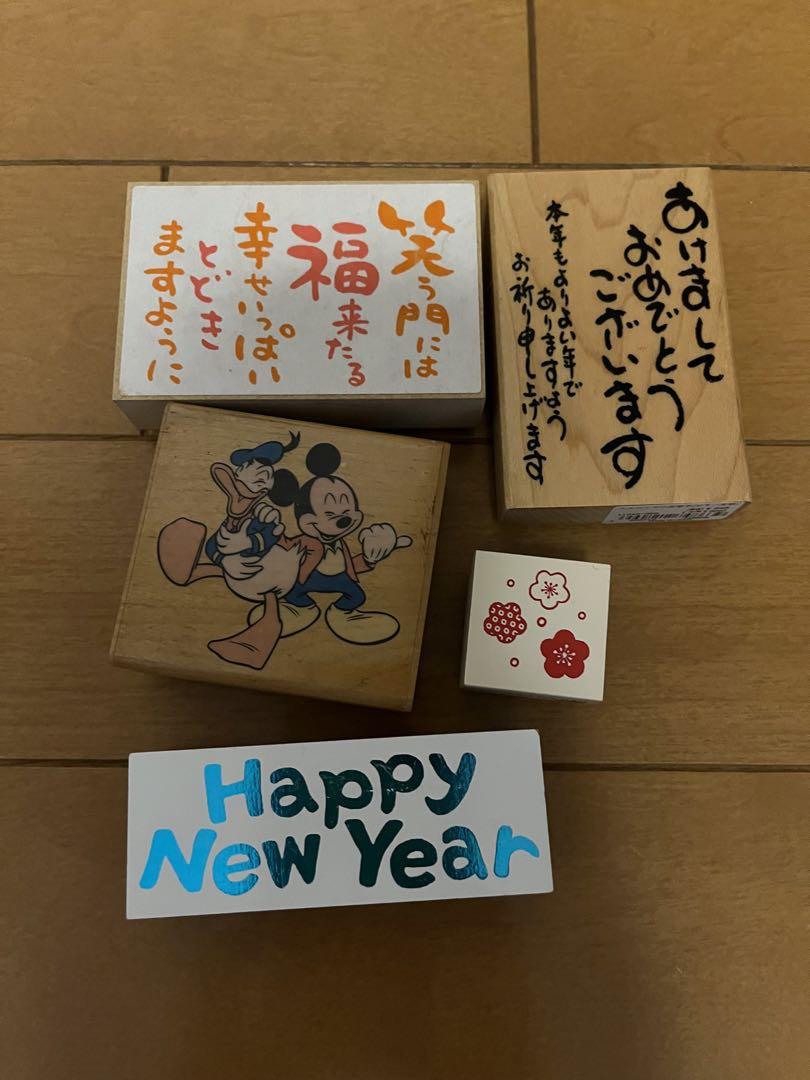 笑う門には
福来たる
幸せいっぱい
とどき
ますように
あけまして
おめでとう
ございます
本年もよりよい年で
ありますよう
お祈り申し上げます
Happy
New Year